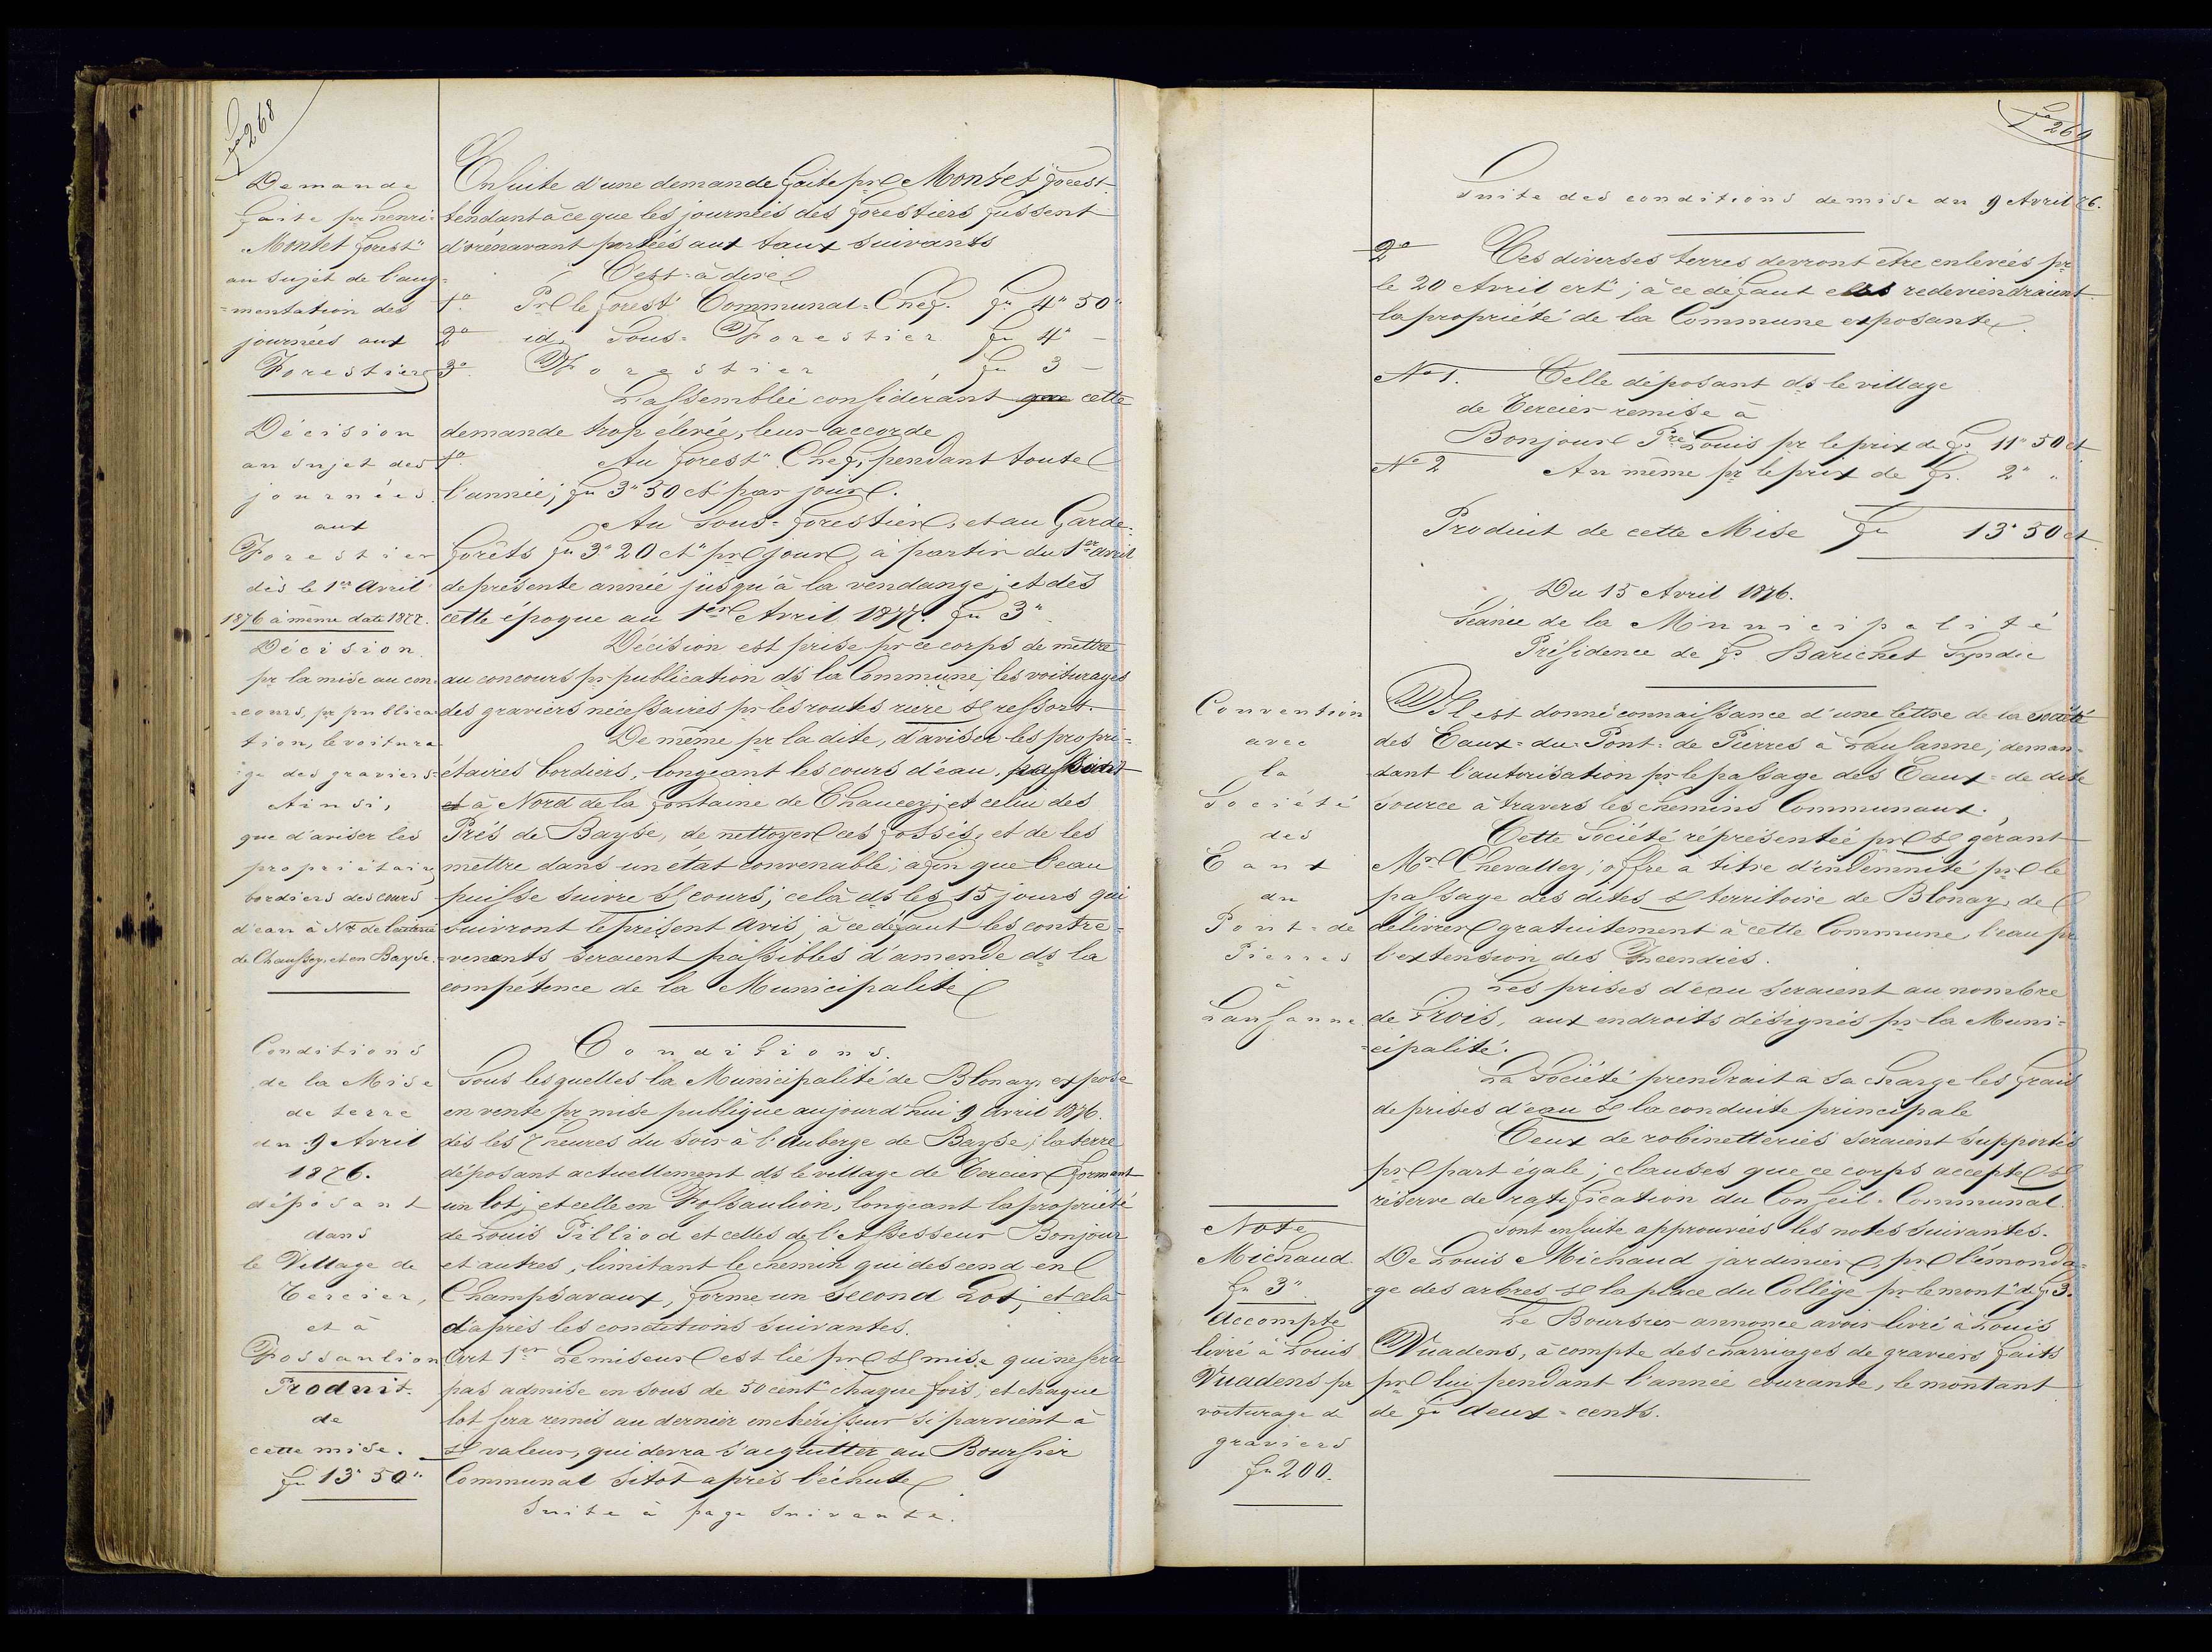 fo 268
Demande
faite pr henri
Montet forest"
au sujet de l'aug=
=mentation des
journées aux
Forestiers
Décision
au sujet des
journées
aux
Forestier
dès le 1er Avril
1876 à même date 1877.
Décision
pr la mise au con=
=cours, pr publica=
tion, le voitura
ge des graviers=
Ainsi,
que d'aviser les
propriétaires
bordiers des cours
d'eau à Nd de la
de Chaussey, et en Bayse.
Conditions
de la Mise
de terre
du 9 Avril
1876.
déposant
dans
le Village de
Tercier,
et à
Fossaulion
Produit
de
cette mise.
fr 13" 50"
Ensuite d'une demande faite pr Montet forest
tendant à ce que les journées des forestiers fussent
d'orénavant portées aux taux suivants
C'est=à dire
1° Pr le forest" Communal=Chef. fr 4" 50"
2° id. Sous=Forestier fr 4" –
3° Forestier fr 3 –
L'assemblée considérant que cette
demande trop élevée, leur accorde
1° Au forest" Chef, pendant toute
l'année; fr 3" 50 ct" par jour.
Au Sous=forestier, et au Garde=
forêts fr 3" 20 ct" pr jour, à partir du 1er avril
de présente année jusqu'à la vendange; et dès
cette époque au 1er Avril 1877. fr 3"
Décision est prise pr ce corps de mettre
au concours pr publication ds la Commune, les voiturages
des graviers nécessaires pr les routes rière sr ressort.
De même pr la dite, d'aviser les propri=
étaires bordiers, longeant les cours d'eau, passant
et à Nord de la fontaine de Chaucey; et celui des
Prés de Bayse, de nettoyer ces fossés, et de les
mettre dans un état convenable; afin que l'eau
puisse suivre sr cours; celà ds les 15 jours qui
suivront le présent avis; à ce défaut les contre=
=venants seraient passibles d'amende ds la
compétence de la Municipalité
Conditions.
Sous lesquelles la Municipalité de Blonay, expose
en vente pr mise publique aujourd'hui 9 avril 1876.
dès les 7 heures du soir à l'Auberge de Bayse; la terre
déposant actuellement ds le village de Tercier formant
un lot; et celle en Fossaulion, longeant la propriété
de Louis Pilliod et celles de l'Assesseur Bonjour
et autres, limitant le chemin qui descend en
Champsavaux, forme un second Lot; et celà
d'après les conditions suivantes.
Art 1er Le miseur est lié pr sr mise qui ne sera
pas admise en sous de 50 cent" chaque fois, et chaque
lot sera remis au dernier enchérisseur si parvient à
sr valeur, qui devra s'acquitter au Boursier
Communal sitôt après l'échute
Suite à page suivante.
fo 269
Suite des conditions de mise du 9 Avril 76.
2° Ces diverses terres devront être enlevées pr
le 20 Avril crt"; à ce défaut elles redeviendraient
la propriété de la Commune exposante.
N° 1. Celle déposant ds le village
de Tercier remise à
Bonjour Pre Louis pr le prix de fr. 11" 50 ct
N° 2 Au même pr le prix de fr. 2" "
Produit de cette Mise fr 13" 50 ct
Du 15 Avril 1876.
Séance de la Municipalité
Présidence de fs Barichet Syndic
Convention
avec
la
Société
des
Eaux
du
Pont=de
Pierres
à
Lausanne
Note
Michaud
fr 3"
Accompte
livré à Louis
Vuadens pr
voiturage de
graviers
fr 200.
Il est donné connaissance d'une lettre de la Société
des Eaux=du=Pont=de Pierres à Lausanne; deman=
dant l'autorisation pr le passage des Eaux=de dite
source à travers les chemins Communaux.
Cette Société réprésentée pr sr gérant
Mr Chevalley; offre à titre d'indemnité pr le
passage des dites sr territoire de Blonay, de
délivrer gratuitement à cette Commune, l'eau pr
l'extension des Incendies.
Les prises d'eau seraient au nombre
de Trois, aux endroits désignés pr la Muni=
=cipalité.
La Société prendrait à sa charge les frais
de prises d'eau sr la conduite principale
Ceux de robinetteries seraient supportés
pr part égale; clauses que ce corps accepte sr
réserve de ratification du Conseil=Communal.
Sont ensuite approuvées les notes suivantes.
De Louis Michaud jardinier, pr l'émonda=
ge des arbres sr la place du Collège pr le mont" de fr 3.
Le Boursier annonce avoir livré à Louis
Vuadens, à compte des charriages de graviers faits
pr lui pendant l'année courante, le montant
de fr deux=cents.